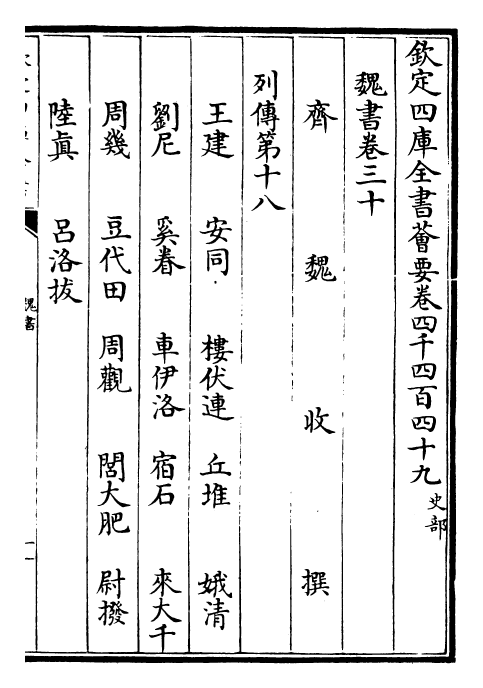 欽定四庫全書薈要卷四千四百四十九 史部
魏書卷三十
齊 魏 收 撰
列傳第十八
王建 安同 樓伏連 丘堆 娥清
劉尼 奚眷 車伊洛 宿石 來大千
周幾 豆代田 周觀 閭大肥 尉撥
陸真 呂洛拔
魏書